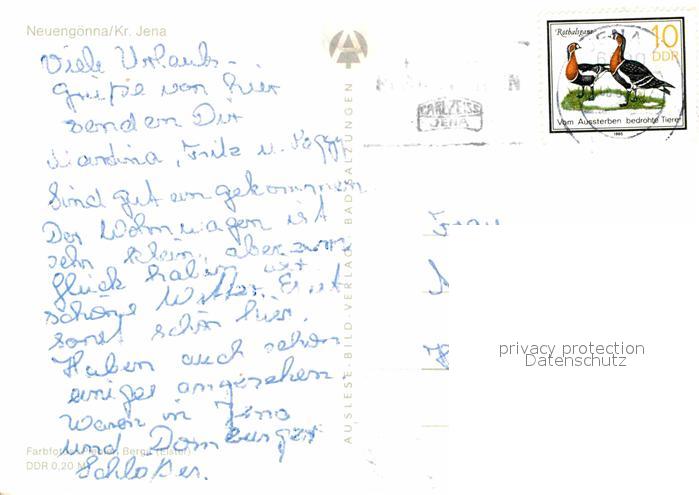 Neuengönna/Kr. Jena
Viele Urlaubs-
grüße von hier
senden Dir
Fritz u.
Sind gut angekommen
Der Wohnwagen ist
sehr klein, aber zum
Glück haben wir
schönes Wetter. Es ist
sonst schön hier.
Haben auch schon
einiges angesehen.
Waren in Jena
und Dornburger
Schlößer.
Farbfoto: Berga (Elster)
DDR 0,20 M
AUSLESE-BILD-VERLAG BAD SALZUNGEN
CARL ZEISS
JENA
Rothalsgans
10
DDR
Vom Aussterben bedrohte Tiere
1985
Frau
privacy protection
Datenschutz